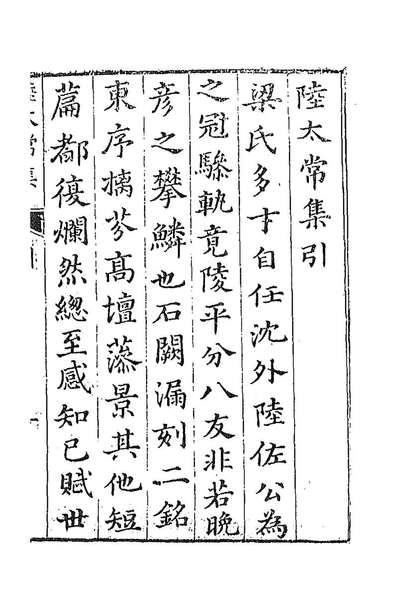 陸太常集引
梁氏多才自任沈外陸佐公為
之冠驂軌竟陵平分八友非若晚
彦之攀鱗也石闕漏刻二銘
東序摛芬高壇蔭景其他短
篇都復爛然總至感知己賦世
陸太常集